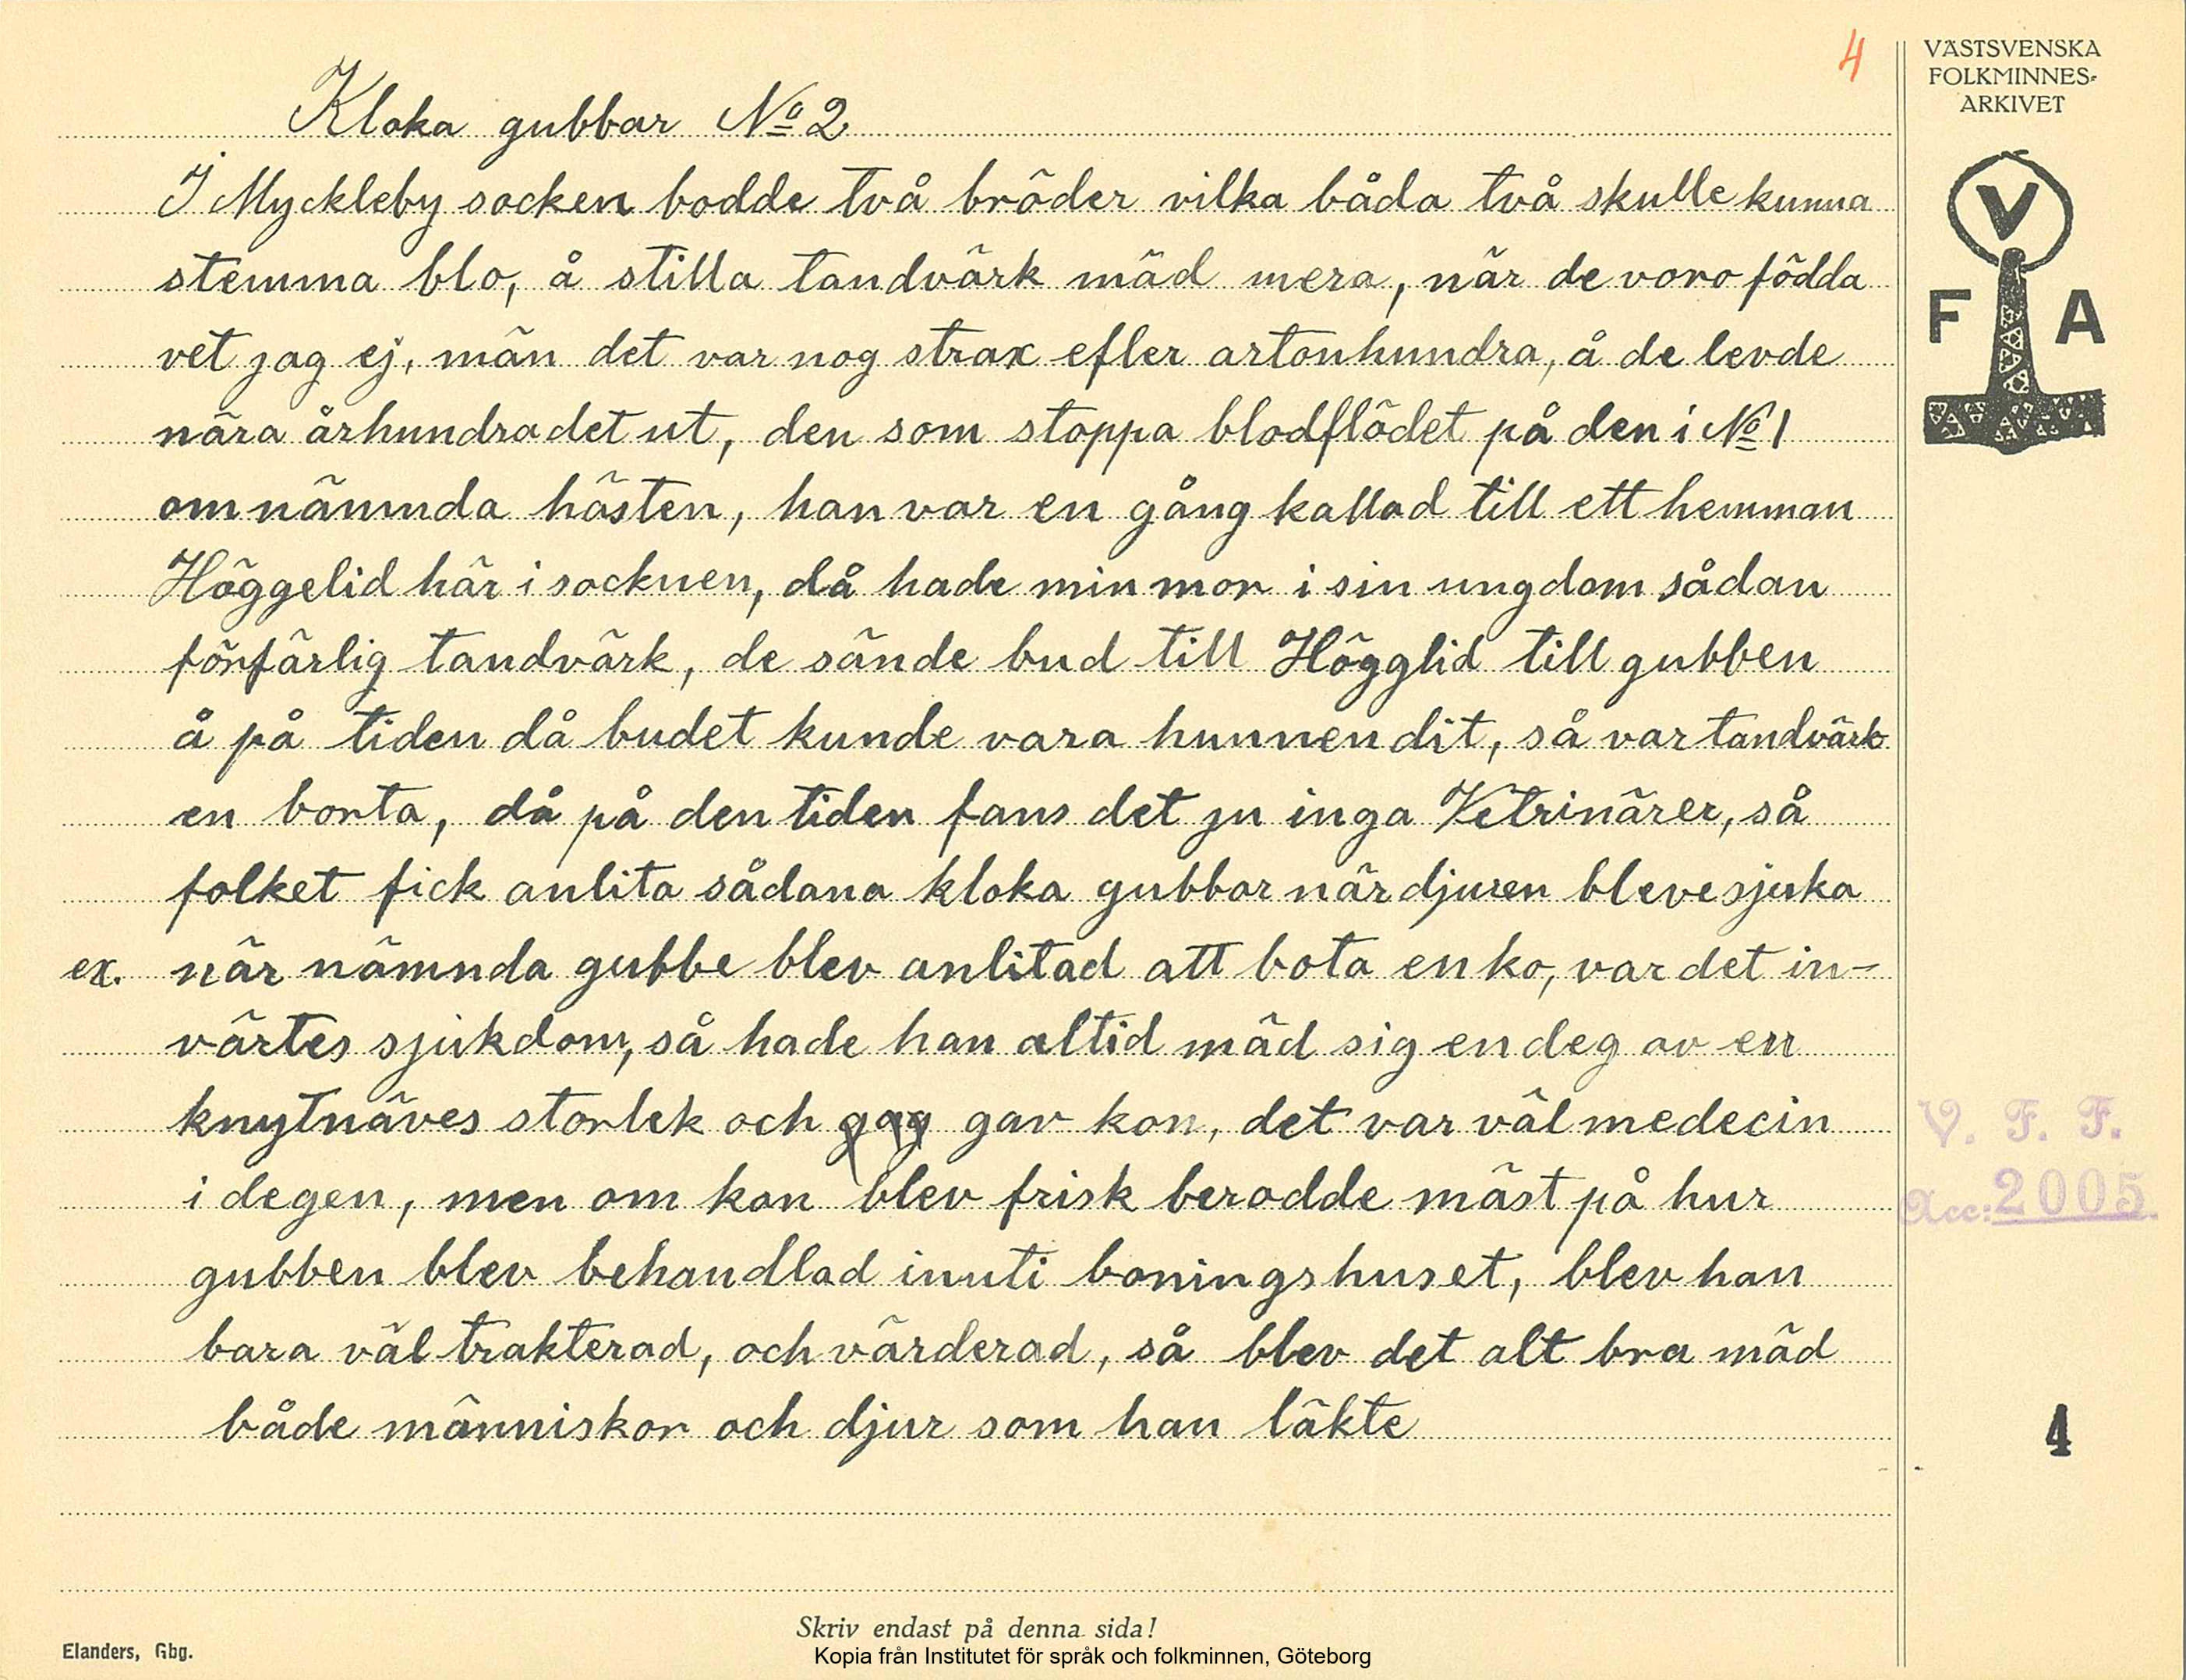 4
VÄSTSVENSKA
FOLKMINNES-
ARKIVET
V
F A
Kloka gubbar No 2
I Myckleby socken bodde två bröder vilka båda två skulle kunna
stemma blo, å stilla tandvärk mäd mera, när de voro födda
vet jag ej, män det var nog strax efter artonhundra, å de levde
nära århundradet ut, den som stoppa blodflödet på den i No 1
omnämnda hästen, han var en gång kallad till ett hemman
Höggelid här i socknen, då hade min mor i sin ungdom sådan
förfärlig tandvärk, de sände bud till Högglid till gubben
å på tiden då budet kunde vara hunnen dit, så var tandvärk
en borta, då på den tiden fans det ju inga Vetrinärer, så
folket fick anlita sådana kloka gubbar när djuren bleve sjuka
ex. när nämnda gubbe blev anlitad att bota en ko, var det in-
värtes sjukdom, så hade han altid mäd sig en deg av en
knytnäves storlek och gag gav kon, det var väl medecin
i degen, men om kon blev frisk berodde mäst på hur
gubben blev behandlad inuti boningshuset, blev han
bara väl trakterad, och värderad, så blev det alt bra mäd
både människor och djur som han läkte
V. F. F.
Acc: 2005
4
Skriv endast på denna sida!
Elanders, Gbg.
Kopia från Institutet för språk och folkminnen, Göteborg